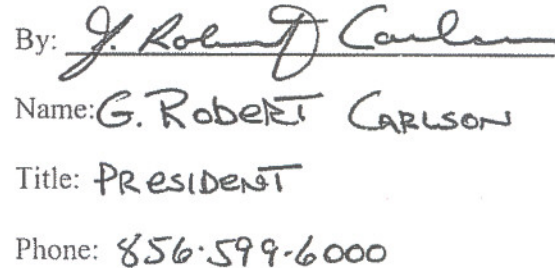 By: G. Robert Carlson
Name: G. Robert Carlson
Title: President
Phone: 856.599.6000